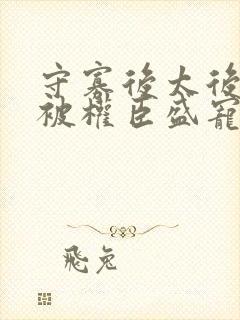 守寡後太後
被權臣盛寵
飛兔